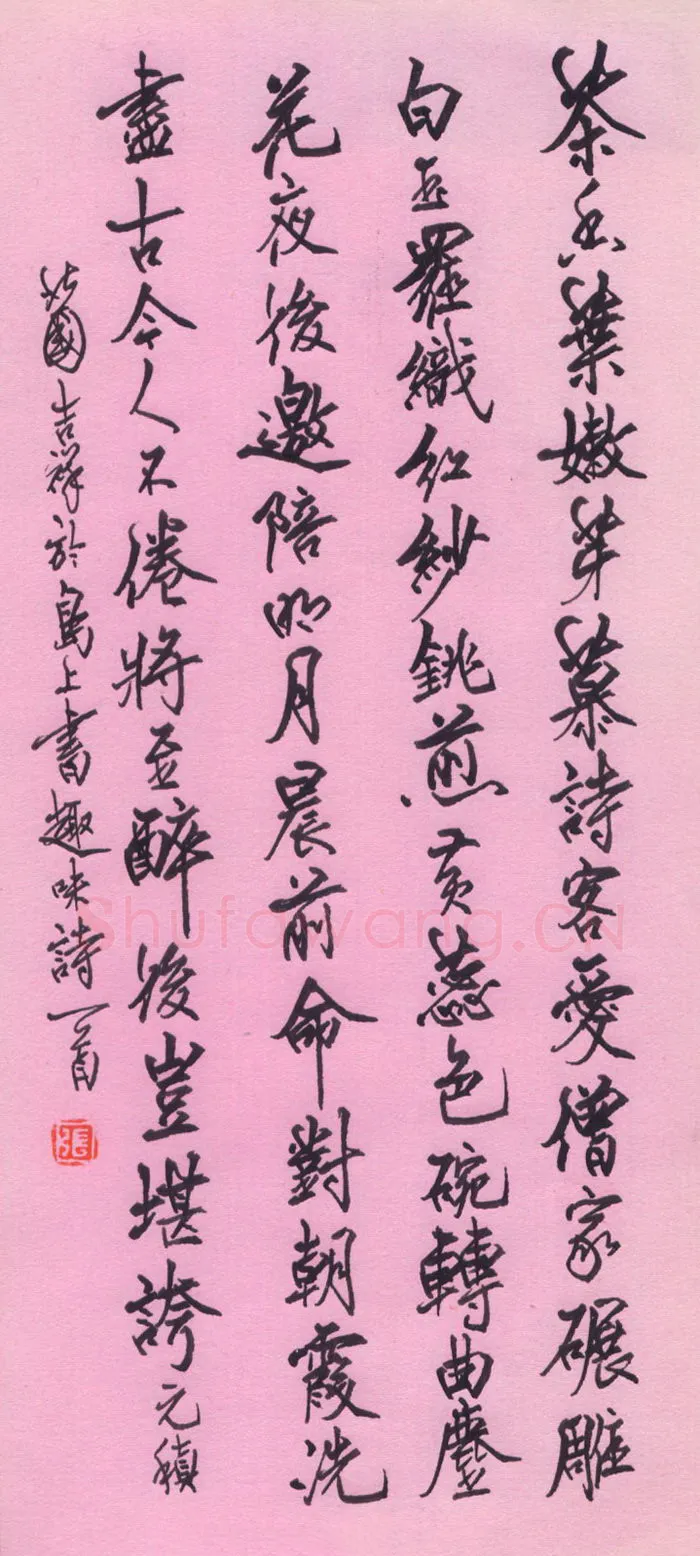 茶香葉嫩芽慕詩客愛僧家碾雕
白玉羅織紅紗銚煎黃蕊色碗轉曲塵
花夜後邀陪明月晨前命對朝霞洗
盡古今人不倦將至醉後豈堪誇元稹
北國吉祥於島上書趣味詩一首
張
Shufawang.CN